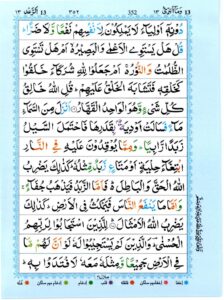 وَمَآ اُبَرِّئُ 13 352 ٣٥٢ اَلرَّعْد 13 ١٣
دُوْنِهٖٓ اَوْلِيَآءَ لَا يَمْلِكُوْنَ لِاَنْفُسِهِمْ نَفْعًا وَّلَا ضَرًّا ؕ
قُلْ هَلْ يَسْتَوِى الْاَعْمٰى وَالْبَصِيْرُ ۙ اَمْ هَلْ تَسْتَوِى
الظُّلُمٰتُ وَالنُّوْرُ ۚ اَمْ جَعَلُوْا لِلّٰهِ شُرَكَآءَ خَلَقُوْا
كَخَلْقِهٖ فَتَشَابَهَ الْخَلْقُ عَلَيْهِمْ ؕ قُلِ اللّٰهُ خَالِقُ
كُلِّ شَىْءٍ وَّهُوَ الْوَاحِدُ الْقَهَّارُ اَنْزَلَ مِنَ السَّمَآءِ
مَآءً فَسَالَتْ اَوْدِيَةٌۢ بِقَدَرِهَا فَاحْتَمَلَ السَّيْلُ
زَبَدًا رَّابِيًا ؕ وَمِمَّا يُوْقِدُوْنَ عَلَيْهِ فِى النَّارِ
ابْتِغَآءَ حِلْيَةٍ اَوْ مَتَاعٍ زَبَدٌ مِّثْلُهٗ ؕ كَذٰلِكَ يَضْرِبُ
اللّٰهُ الْحَقَّ وَالْبَاطِلَ ؕ فَاَمَّا الزَّبَدُ فَيَذْهَبُ جُفَآءً ۚ
وَاَمَّا مَا يَنْفَعُ النَّاسَ فَيَمْكُثُ فِى الْاَرْضِ ؕ كَذٰلِكَ
يَضْرِبُ اللّٰهُ الْاَمْثَالَ ؕ لِلَّذِيْنَ اسْتَجَابُوْا لِرَبِّهِمُ
الْحُسْنٰى ؕ وَالَّذِيْنَ لَمْ يَسْتَجِيْبُوْا لَهٗ لَوْ اَنَّ لَهُمْ مَّا
فِى الْاَرْضِ جَمِيْعًا وَّمِثْلَهٗ مَعَهٗ لَافْتَدَوْا بِهٖ ؕ